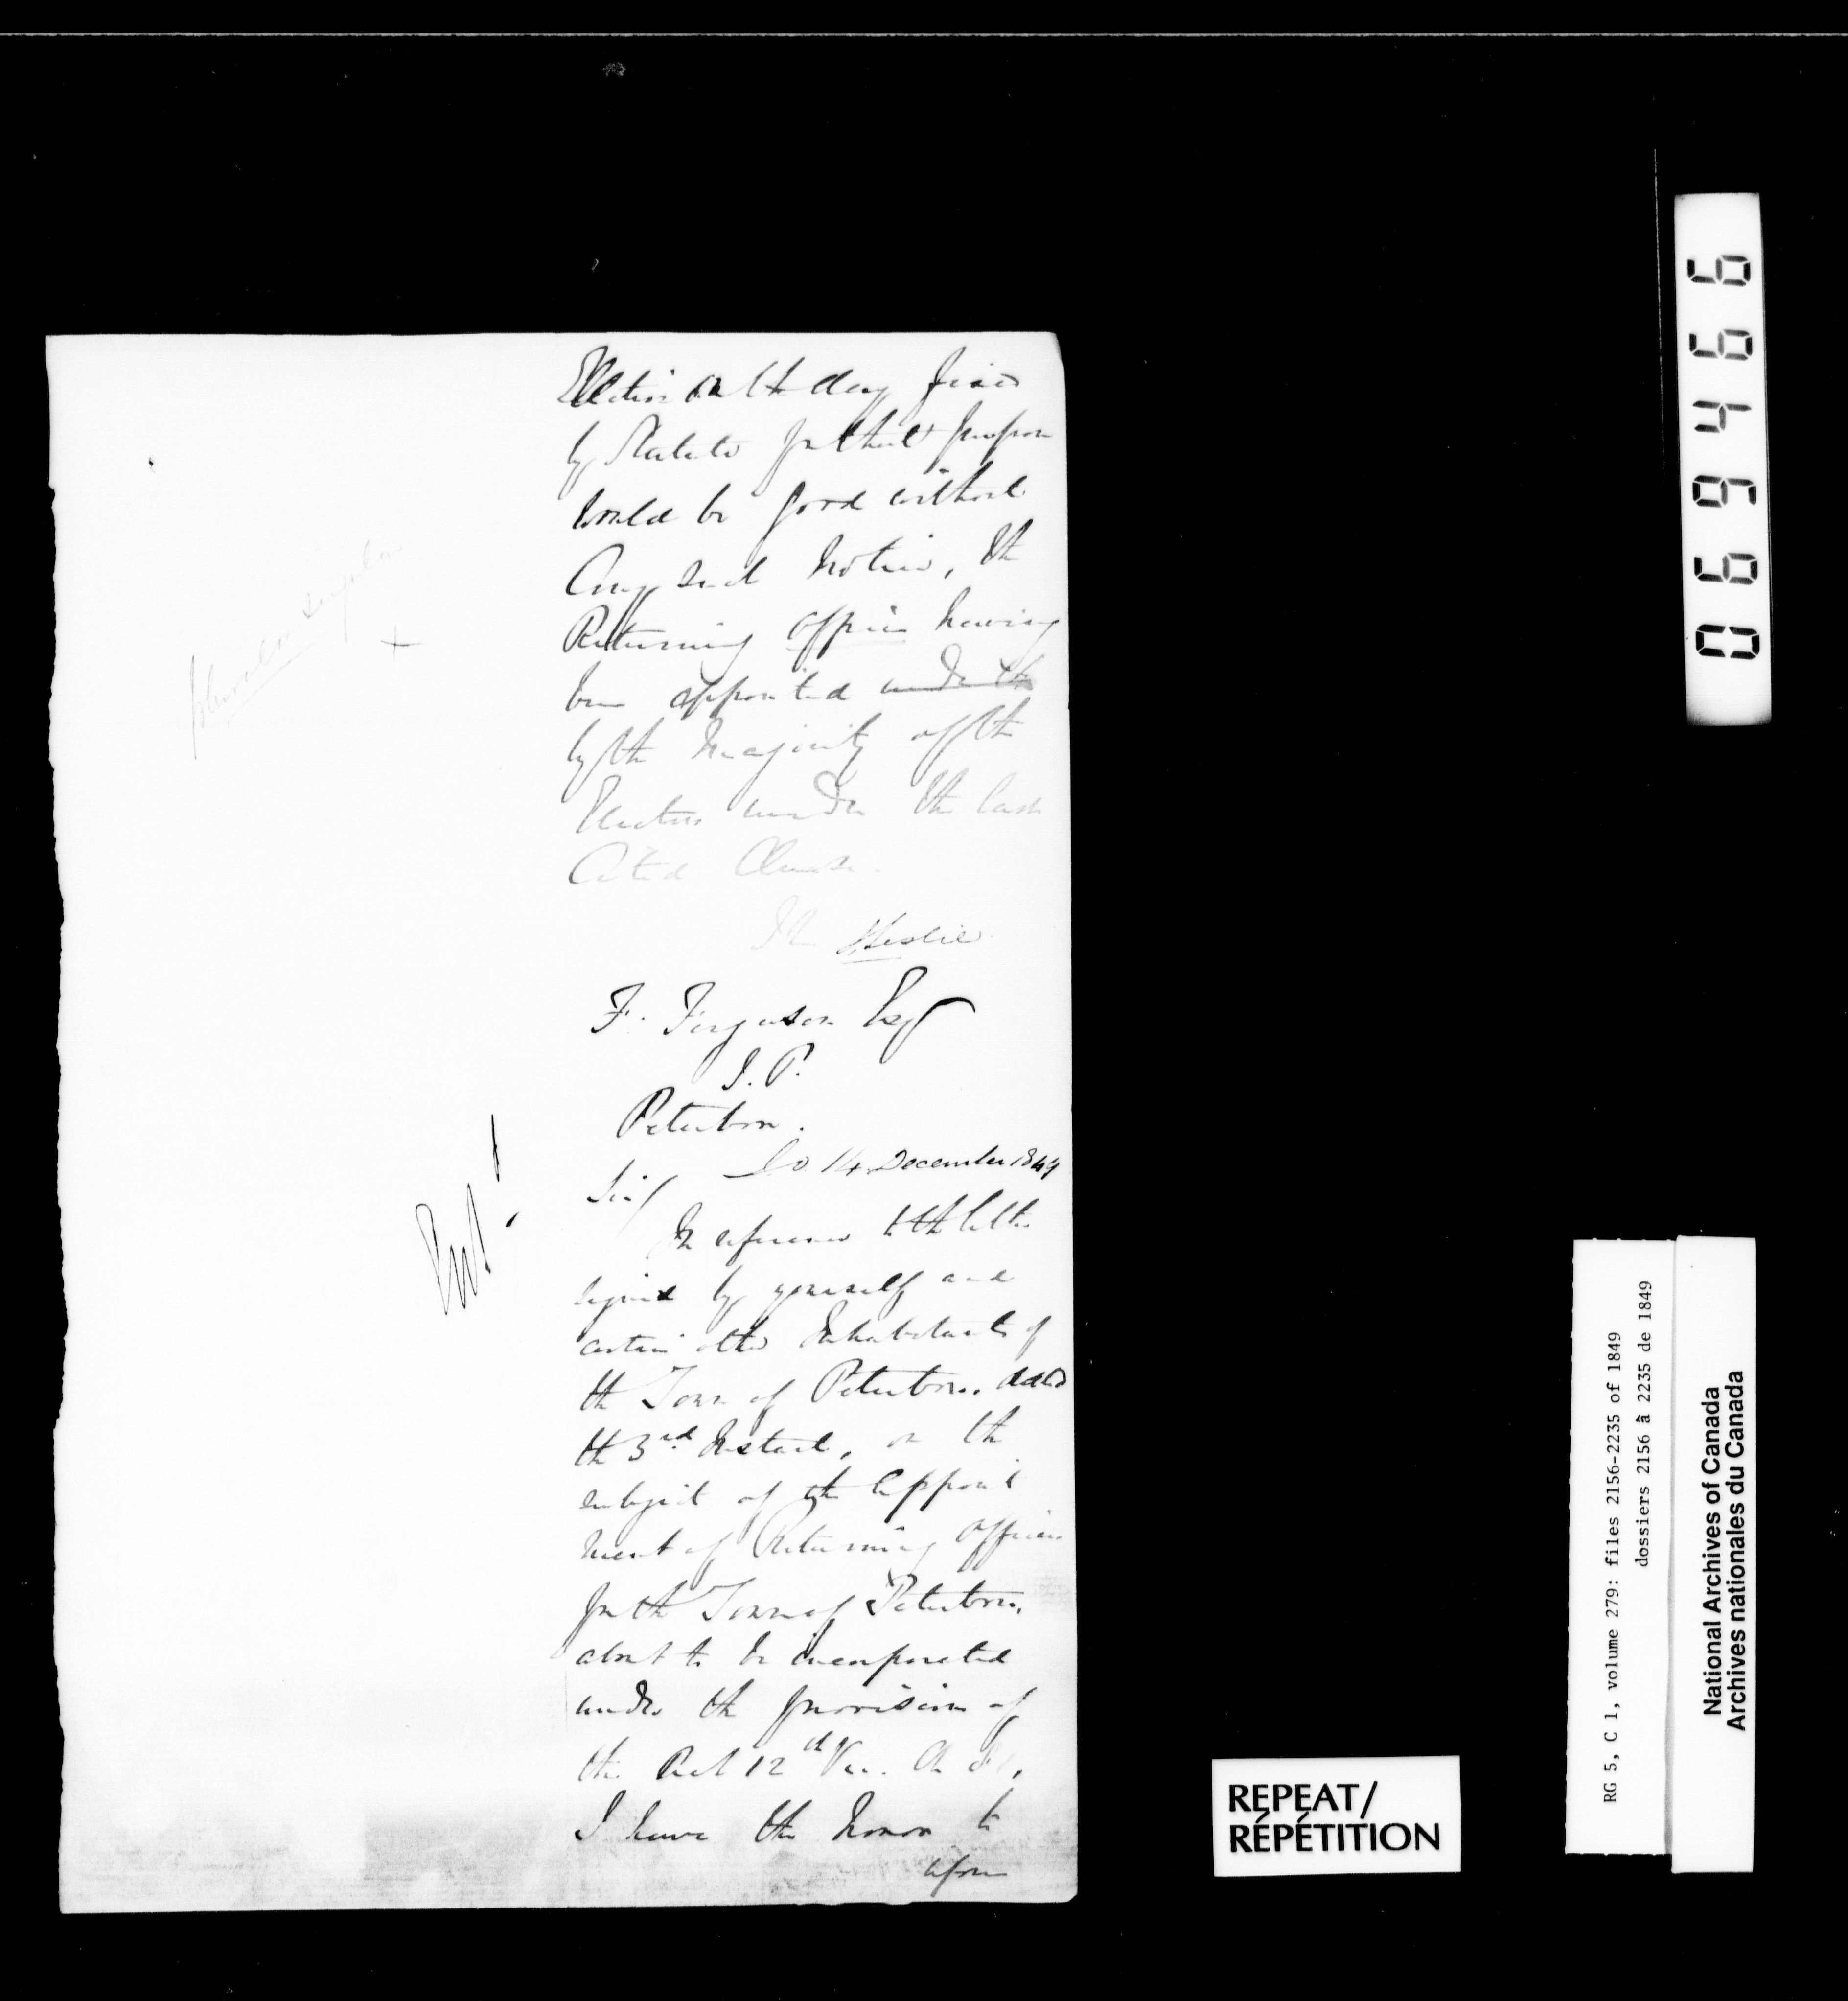 Election on the day fixed
by Statute for that purpose
would be good without
any such notice, the
Returning Officer having
been appointed under the
by the Majority of the
Electors under the last
Cited Clause.
Leslie
F. Ferguson Esq
J. P.
Peterboro.
14 December 1849
Sir/
In reference to the letter
signed by yourself and
certain other Inhabitants of
the Town of Peterboro. dated
the 3rd Instant, on the
subject of the appoint
ment of Returning Officers
for the Town of Peterboro,
about to be incorporated
under the provisions of
the Act 12th Vic. Ch 81,
I have the honor to
inform
plural or singular
+
069466
REPEAT/
RÉPÉTITION
RG 5, C 1, volume 279: files 2156-2235 of 1849
dossiers 2156 à 2235 de 1849
National Archives of Canada
Archives nationales du Canada